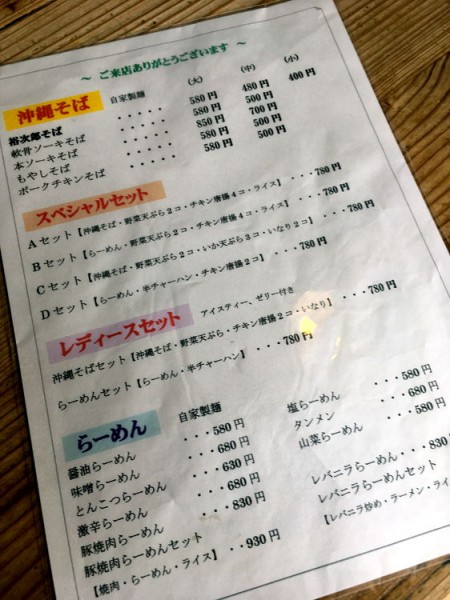 ～ ご来店ありがとうございます ～
沖縄そば 自家製麺 (大) (中) (小)
裕次郎そば ・・・・・ 580円 480円 400円
軟骨ソーキそば ・・・・・ 580円 500円
本ソーキそば ・・・・・ 850円 700円
もやしそば ・・・・・ 580円 500円
ポークチキンそば ・・・・・ 580円 500円
スペシャルセット
Aセット【沖縄そば・野菜天ぷら2コ・チキン唐揚4コ・ライス】 ・・・780円
Bセット【らーめん・野菜天ぷら2コ・チキン唐揚4コ・ライス】 ・・・780円
Cセット【沖縄そば・野菜天ぷら2コ・いか天ぷら3コ・いなり2コ】 ・・・780円
Dセット【らーめん・半チャーハン・チキン唐揚2コ】 ・・・780円
レディースセット アイスティー、ゼリー付き
沖縄そばセット【沖縄そば・野菜天ぷら・チキン唐揚2コ・いなり】 ・・・780円
らーめんセット【らーめん・半チャーハン】 ・・・780円
らーめん 自家製麺
醤油らーめん ・・・580円
味噌らーめん ・・・680円
とんこつらーめん ・・・630円
激辛らーめん ・・・680円
豚焼肉らーめん ・・・830円
豚焼肉らーめんセット
【焼肉・らーめん・ライス】 ・・930円
塩らーめん ・・・580円
タンメン ・・・680円
山菜らーめん ・・・580円
レバニラらーめん・・・830
レバニラらーめんセット
【レバニラ炒め・ラーメン・ライ